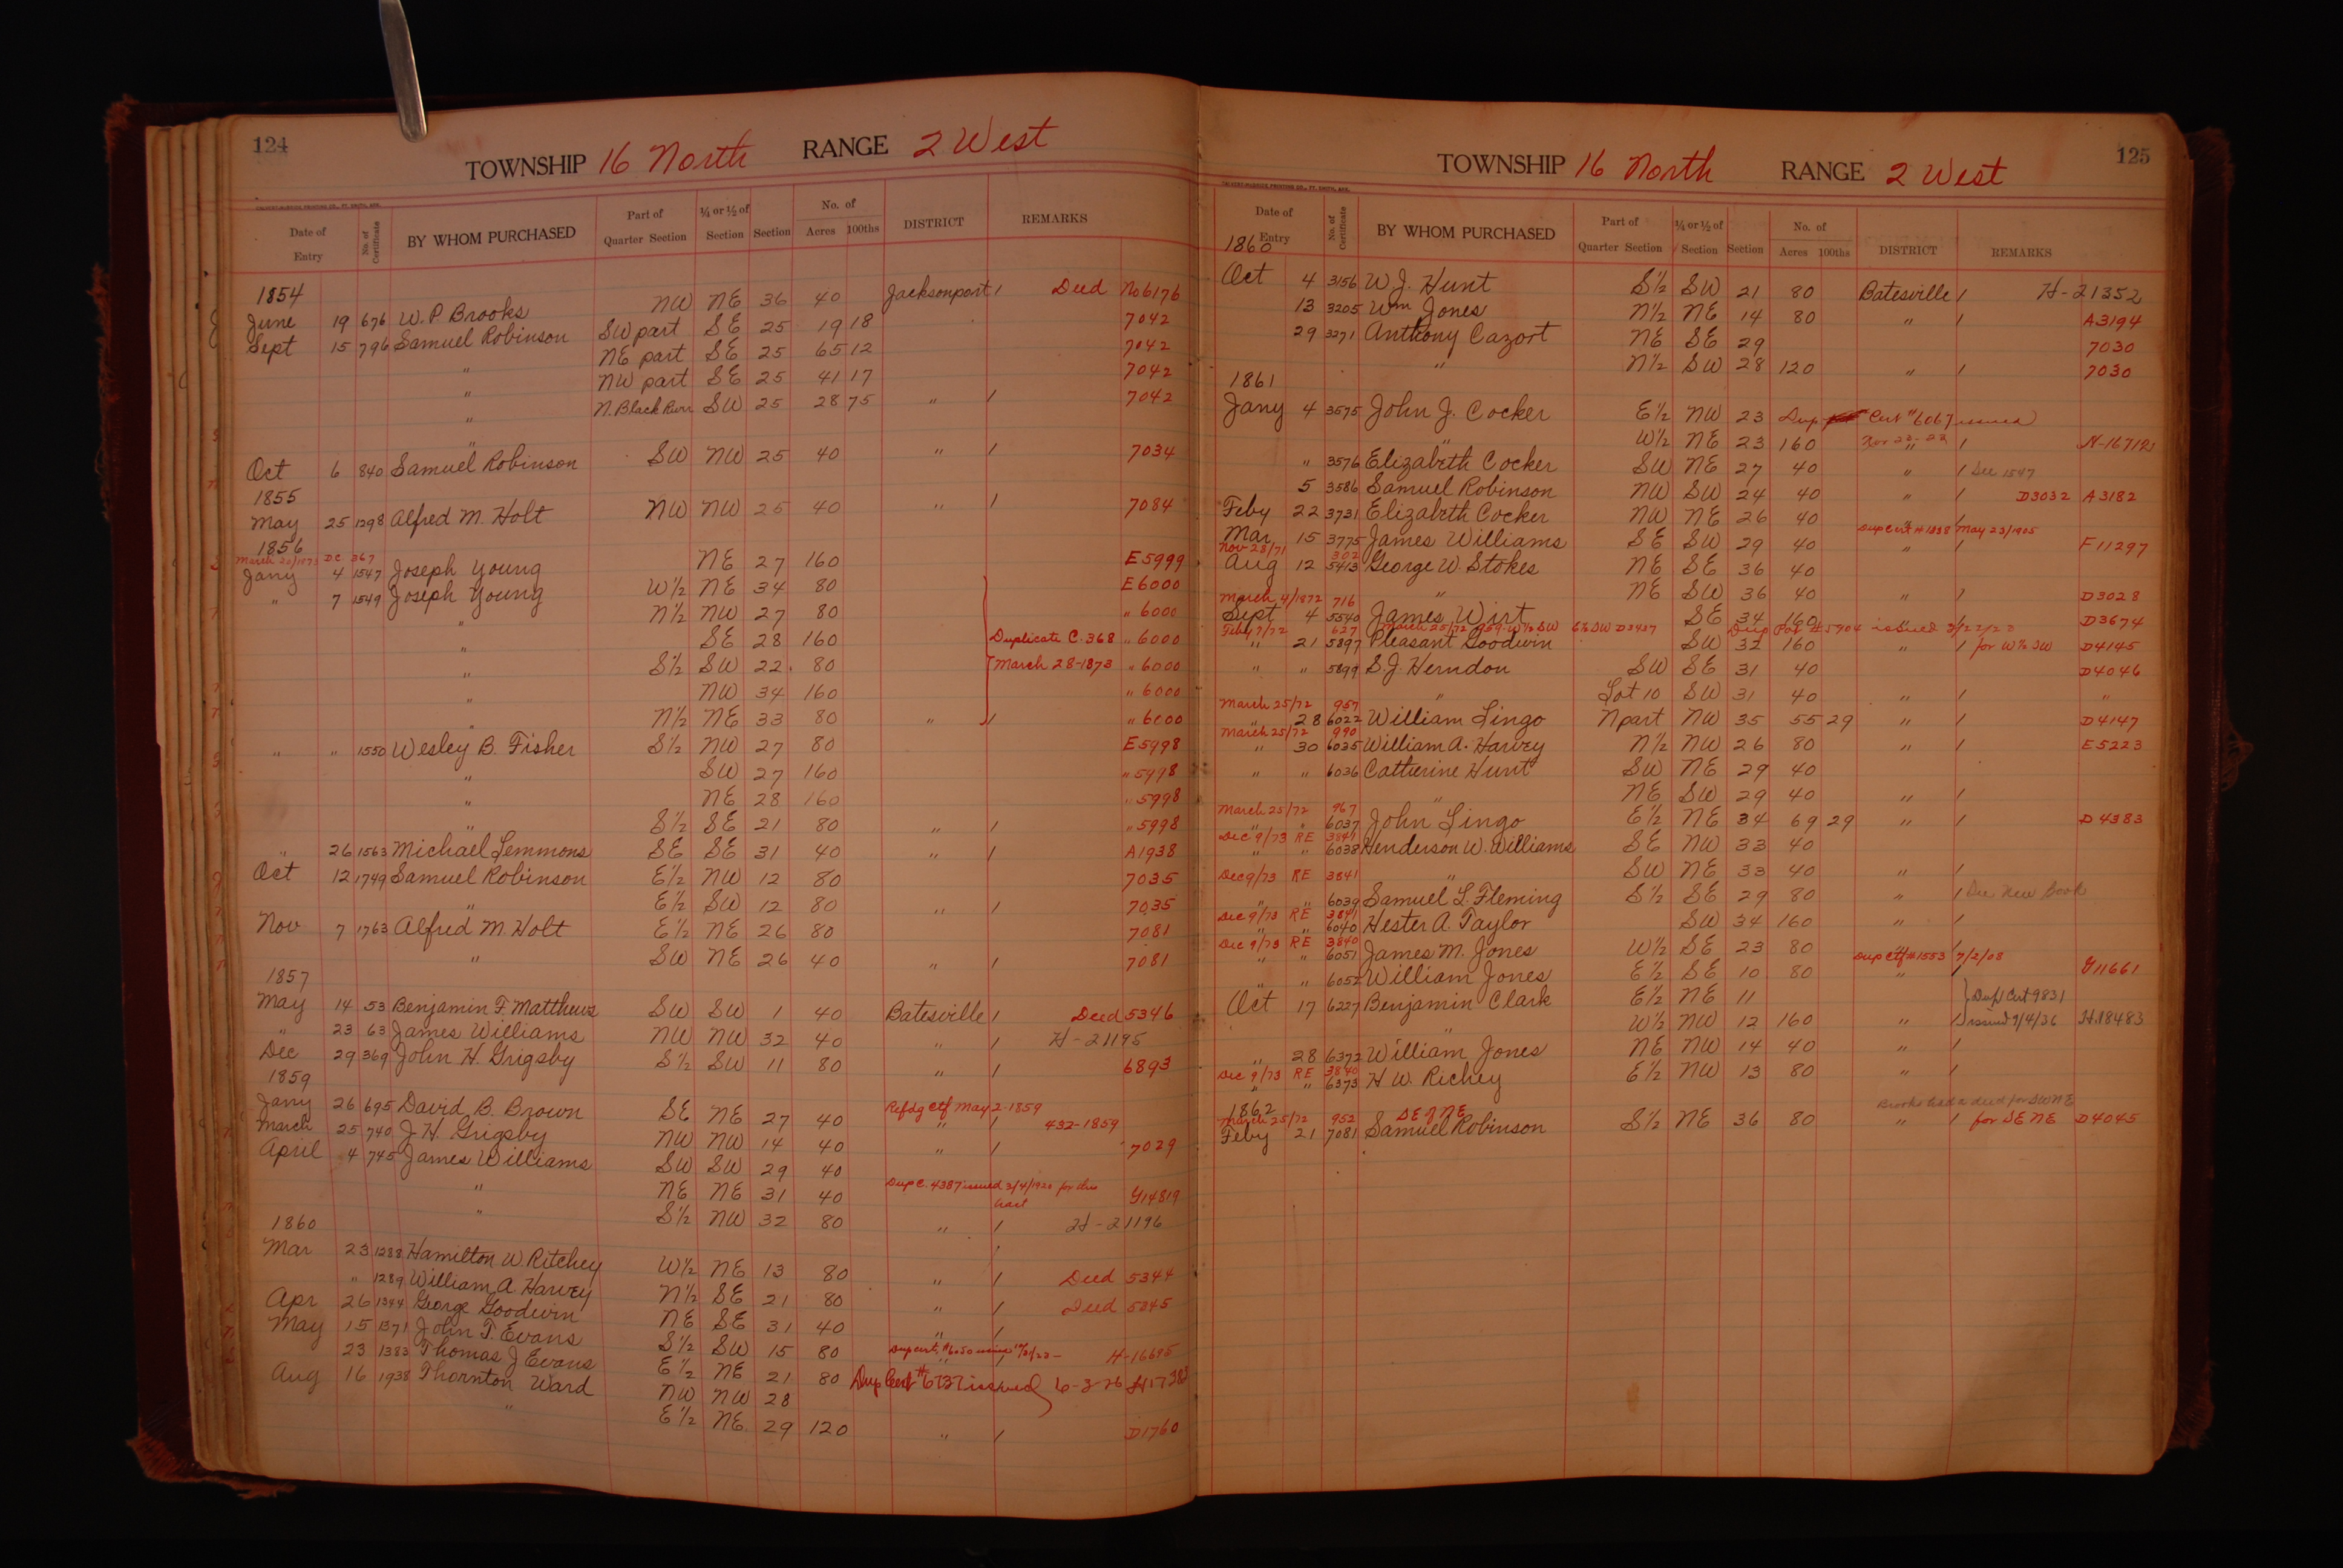 124
TOWNSHIP 16 North RANGE 2 West
CALVERT-McBRIDE PRINTING CO., FT. SMITH, ARK.
Date of Entry No. of Certificate BY WHOM PURCHASED Part of Quarter Section ¼ or ½ of Section Section No. of Acres 100ths DISTRICT REMARKS
1854
June 19 676 W. P. Brooks NW NE 36 40 Jacksonport / Deed No 6176
Sept 15 796 Samuel Robinson SW part SE 25 19 18 7042
" NE part SE 25 65 12 7042
" NW part SE 25 41 17 7042
" N. Black Rivr SW 25 28 75 " / 7042
Oct 6 840 Samuel Robinson SW NW 25 40 " / 7034
1855
May 25 1298 Alfred M. Holt NW NW 25 40 " / 7084
1856
March 28/1873 DC 367
Jany 4 1547 Joseph Young NE 27 160 E 5999
" 7 1549 Joseph Young W½ NE 34 80 E 6000
" N½ NW 27 80 " 6000
" SE 28 160 Duplicate C. 368 " 6000
" S½ SW 22 80 March 28-1873 " 6000
" NW 34 160 " 6000
" N½ NE 33 80 " / " 6000
" " 1550 Wesley B. Fisher S½ NW 27 80 E 5998
" SW 27 160 " 5998
" NE 28 160 " 5998
" S½ SE 21 80 " / " 5998
" 26 1563 Michael Lemmons SE SE 31 40 " / A1938
Oct 12 1749 Samuel Robinson E½ NW 12 80 7035
" E½ SW 12 80 " / 7035
Nov 7 1763 Alfred M. Holt E½ NE 26 80 7081
" SW NE 26 40 " / 7081
1857
May 14 53 Benjamin F. Matthews SW SW 1 40 Batesville / Deed 5346
" 23 63 James Williams NW NW 32 40 " / H-21195
Dec 29 369 John H. Grigsby S½ SW 11 80 " / 6893
1859
Jany 26 695 David B. Brown SE NE 27 40 Refdg ctf May 2-1859
" / 432-1859
March 25 740 J. H. Grigsby NW NW 14 40 " / 7029
April 4 745 James Williams SW SW 29 40
" NE NE 31 40 Dup C. 4387 issued 3/4/1920 for this tract G14819
" S½ NW 32 80 " / H-21196
1860
Mar 23 1288 Hamilton W Ritchey W½ NE 13 80 " / Deed 5344
" 1289 William A Harvey N½ SE 21 80 " / Deed 5345
Apr 26 1344 George Goodwin NE SE 31 40 " /
May 15 1371 John T. Evans S½ SW 15 80 Dup cert. #6050 H-16695
23 1383 Thomas J Evans E½ NE 21 80 Dup Cert #6737 issued 6-3-26
Aug 16 1938 Thornton Ward NW NW 28
" E½ NE 29 120 " / D1760
125
TOWNSHIP 16 North RANGE 2 West
CALVERT-McBRIDE PRINTING CO., FT. SMITH, ARK.
Date of Entry No. of Certificate BY WHOM PURCHASED Part of Quarter Section ¼ or ½ of Section Section No. of Acres 100ths DISTRICT REMARKS
1860
Oct 4 3156 W. J. Hunt S½ SW 21 80 Batesville / H-21352
13 3205 Wm Jones N½ NE 14 80 " / A3194
29 3271 Anthony Cazort NE SE 29 7030
" N½ SW 28 120 " / 7030
1861
Jany 4 3575 John J. Cocker E½ NW 23 Dup Cert #6067 issued
" W½ NE 23 160 Nov 22-22 " / H-16712
" 3576 Elizabeth Cocker SW NE 27 40 " / See 1547
5 3586 Samuel Robinson NW SW 24 40 " / D3032 A3182
Feby 22 3731 Elizabeth Cocker NW NE 26 40 " /
Dup Cert #1388 May 23/1905
Mar 15 3775 James Williams SE SW 29 40 " / F11297
Nov 28/71 302
Aug 12 5413 George W. Stokes NE SE 36 40
" NE SW 36 40 " / D3028
March 4/1872 716
Sept 4 5540 James Wirt SE 34 160 " D3674
Feby 7/72 627 March 25/72 959-W½ SW E½ SW D3437 Dup Pat #5904 issued
" 21 5897 Pleasant Goodwin SW 32 160 " / for W½ SW D4145
" " 5899 S. J. Herndon SW SE 31 40 D4046
" Lot 10 SW 31 40 " / "
March 25/72 957
" 28 6022 William Lingo N part NW 35 55 29 " / D4147
March 25/72 990
" 30 6035 William A. Harvey N½ NW 26 80 " / E5223
" " 6036 Catherine Hunt SW NE 29 40
" NE SW 29 40 " /
March 25/72 967
" " 6037 John Lingo E½ NE 34 69 29 " / D4383
Dec 9/73 RE 3841
" " 6038 Henderson W. Williams SE NW 33 40
Dec 9/73 RE 3841 " SW NE 33 40 " /
" " 6039 Samuel L. Fleming S½ SE 29 80 " / See New Book
Dec 9/73 RE 3841
" " 6040 Hester A. Taylor SW 34 160 " /
Dec 9/73 RE 3840
" " 6051 James M. Jones W½ SE 23 80 " /
Dup ctf #1553 7/2/08
" " 6052 William Jones E½ SE 10 80 " / G11661
Oct 17 6227 Benjamin Clark E½ NE 11 Dup Cert 9831
" W½ NW 12 160 " / issued 9/4/36 H.18483
" 28 6372 William Jones NE NW 14 40 " /
Dec 9/73 RE 3840
" " 6373 H W. Richey E½ NW 13 80 " /
1862 Brooks had a deed for SW NE
March 25/72 952 SE NE
Feby 21 7081 Samuel Robinson S½ NE 36 80 " / for SE NE D4045